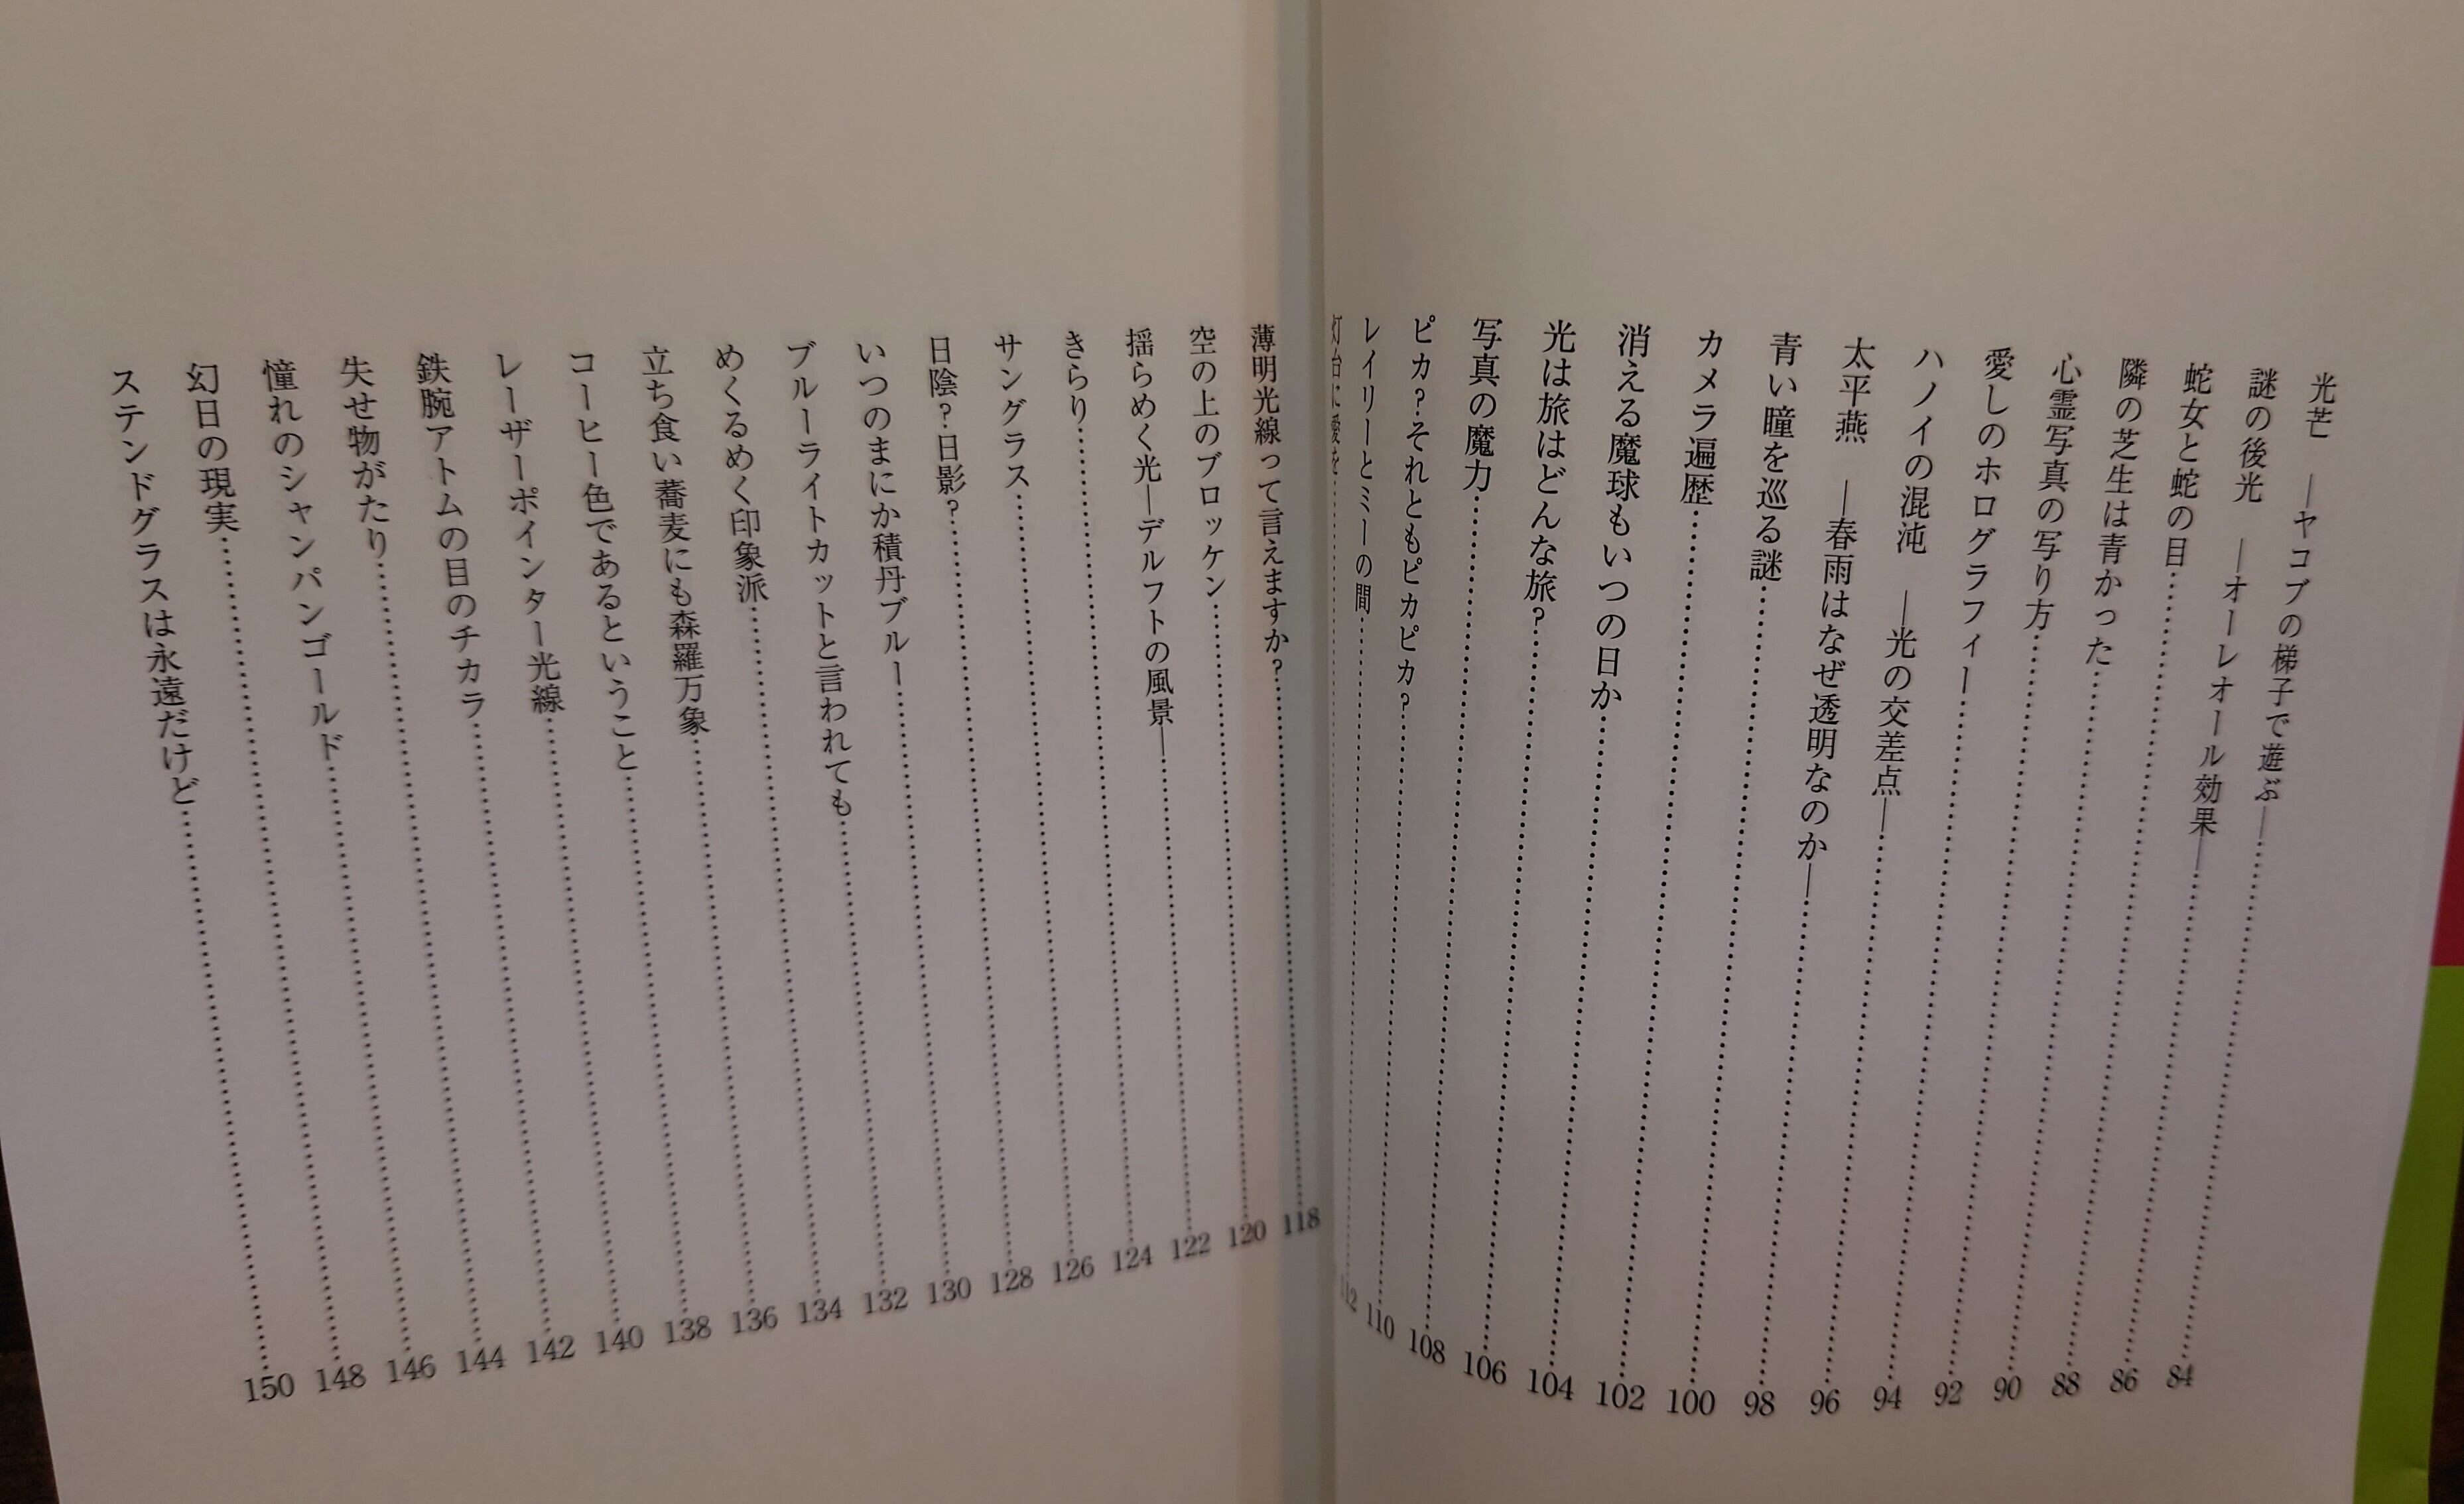 光芒 ―ヤコブの梯子で遊ぶ―……84
謎の後光 ―オーレオール効果―……86
蛇女と蛇の目……88
隣の芝生は青かった……90
心霊写真の写り方……92
愛しのホログラフィー……94
ハノイの混沌 ―光の交差点―……96
太平燕 ―春雨はなぜ透明なのか―……98
青い瞳を巡る謎……100
カメラ遍歴……102
消える魔球もいつの日か……104
光は旅はどんな旅?……106
写真の魔力……108
ピカ?それともピカピカ?……110
レイリーとミーの間……112
灯台に愛を……
薄明光線って言えますか?……118
空の上のブロッケン……120
揺らめく光―デルフトの風景―……122
きらり……124
サングラス……126
日陰?日影?……128
いつのまにか積丹ブルー……130
ブルーライトカットと言われても……132
めくるめく印象派……134
立ち食い蕎麦にも森羅万象……136
コーヒー色であるということ……138
レーザーポインター光線……140
鉄腕アトムの目のチカラ……142
失せ物がたり……144
憧れのシャンパンゴールド……146
幻日の現実……148
ステンドグラスは永遠だけど……150